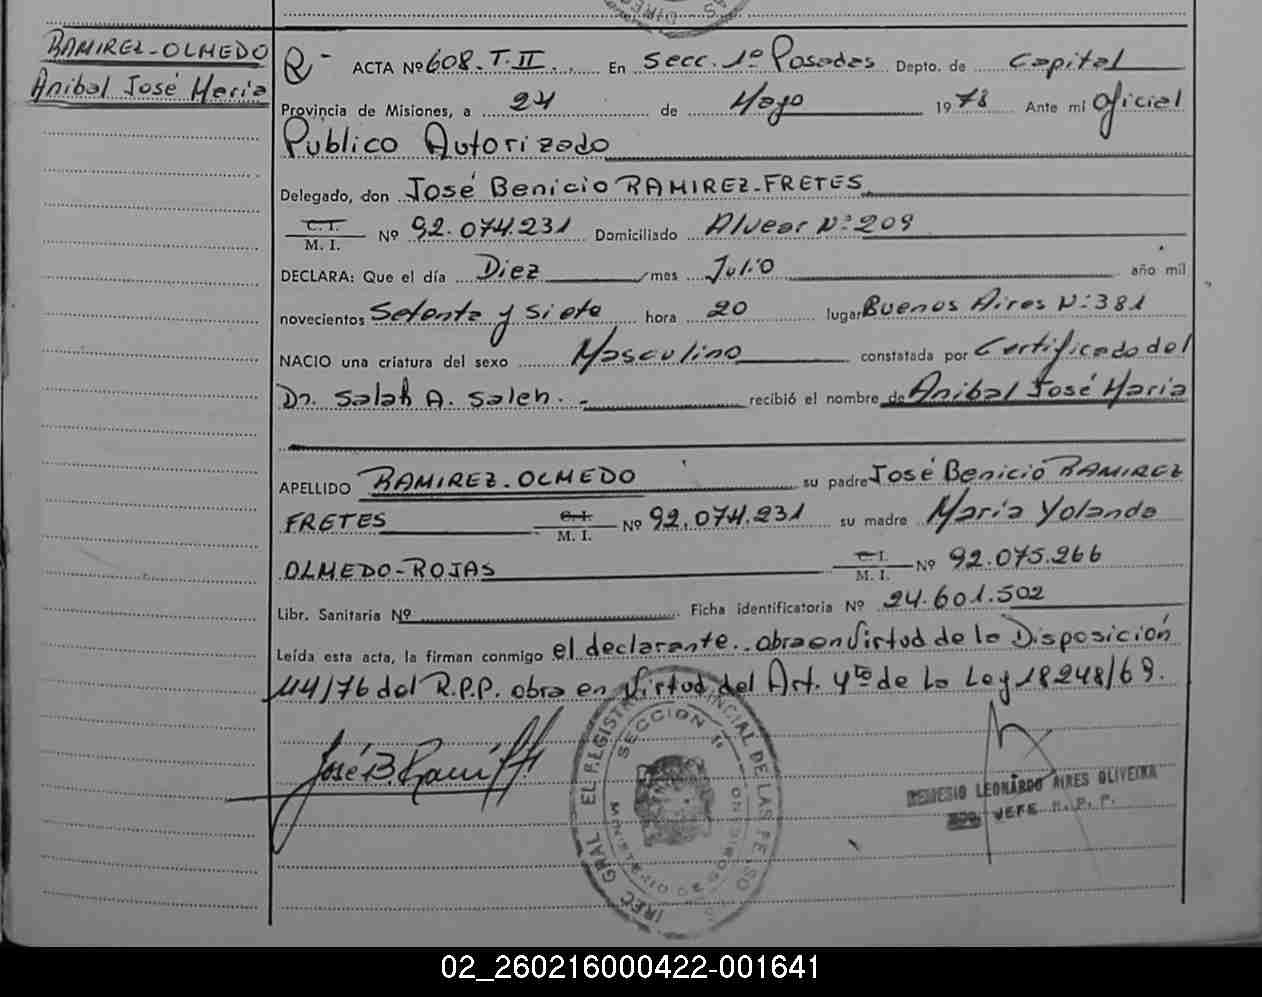 RAMIREZ-OLMEDO
Anibal José María
R- ACTA Nº 608. T. II. En Secc. 1º Posadas Depto. de Capital
Provincia de Misiones, a 24 de Mayo 1978 Ante mi Oficial
Publico Autorizado
Delegado, don José Benicio RAMIREZ-FRETES
C. I.
M. I. Nº 92.074.231 Domiciliado Alvear Nº 209
DECLARA: Que el día Diez mes Julio año mil
novecientos Setenta y Siete hora 20 lugar Buenos Aires Nº 381
NACIO una criatura del sexo Masculino constatada por Certificado del
Dr. Salah A. Saleh. - recibió el nombre de Anibal José María
APELLIDO RAMIREZ-OLMEDO su padre José Benicio RAMIREZ
FRETES C. I. M. I. Nº 92.074.231 su madre María Yolanda
OLMEDO-ROJAS C. I. M. I. Nº 92.075.266
Libr. Sanitaria Nº Ficha identificatoria Nº 24.601.502
Leída esta acta, la firman conmigo el declarante. obra en Virtud de la Disposición
44/76 del R.P.P. obra en Virtud del Art. 4to de la Ley 18248/69.
José B Ramí
SECCION 1ª
LEONARDO AIRES OLIVEIRA
JEFE R. P. P.
02_260216000422-001641